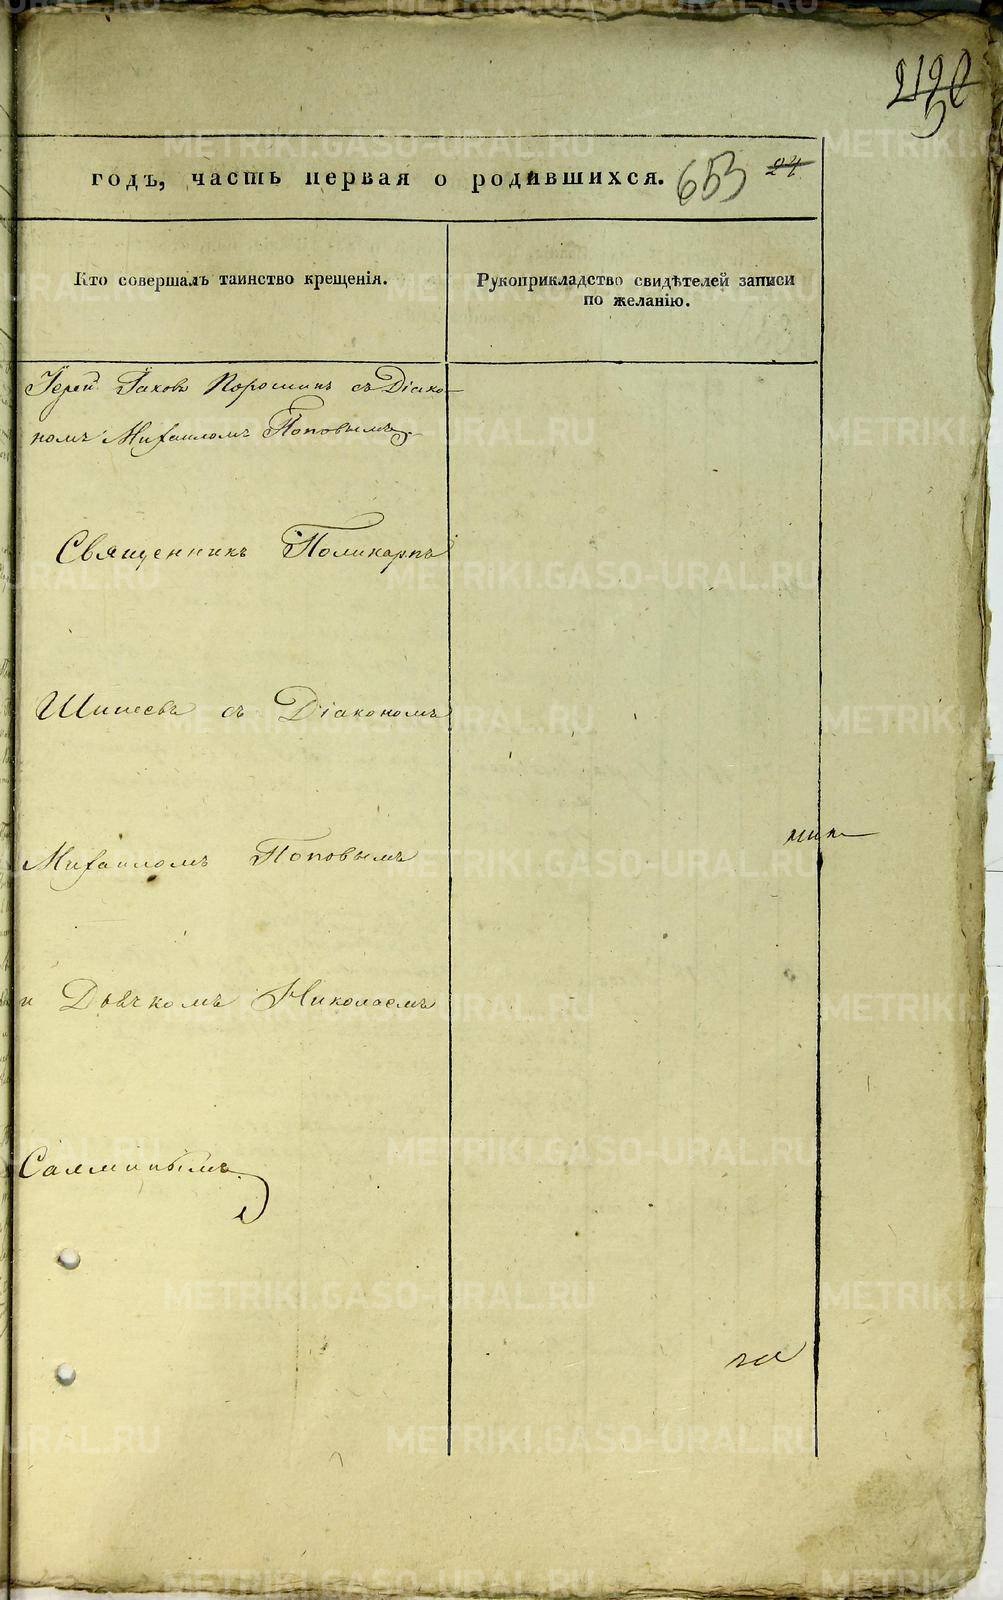 годъ, часть первая о родившихся. 653 24
Кто совершалъ таинство крещенія.
Рукоприкладство свидѣтелей записи
по желанію.
Іерей Іаковъ Порошинъ съ Діако-
номъ Михаиломъ Поповымъ
Священникъ Поликарпъ
съ Діакономъ
Михаиломъ Поповымъ
и Дьячкомъ Николаемъ
METRIKI.GASO-URAL.RU